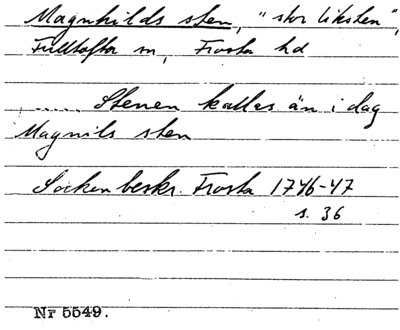 Magnhilds sten, "stor liksten",
Fulltofta sn, Frosta hd
, ..... Stenen kallas än i dag
Magnils sten
Sockenbeskr. Frosta 1746-47
s. 36
Nr 5549.